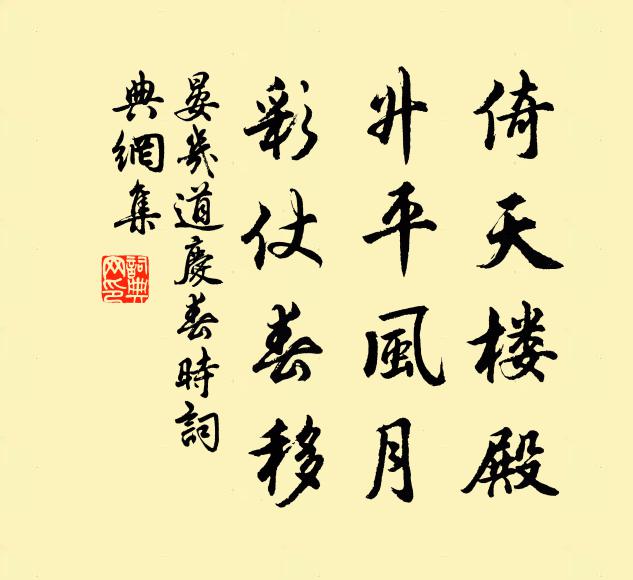 倚天楼殿
升平風月
彩仗春移
晏幾道慶春時詞
典網集
詞典網印